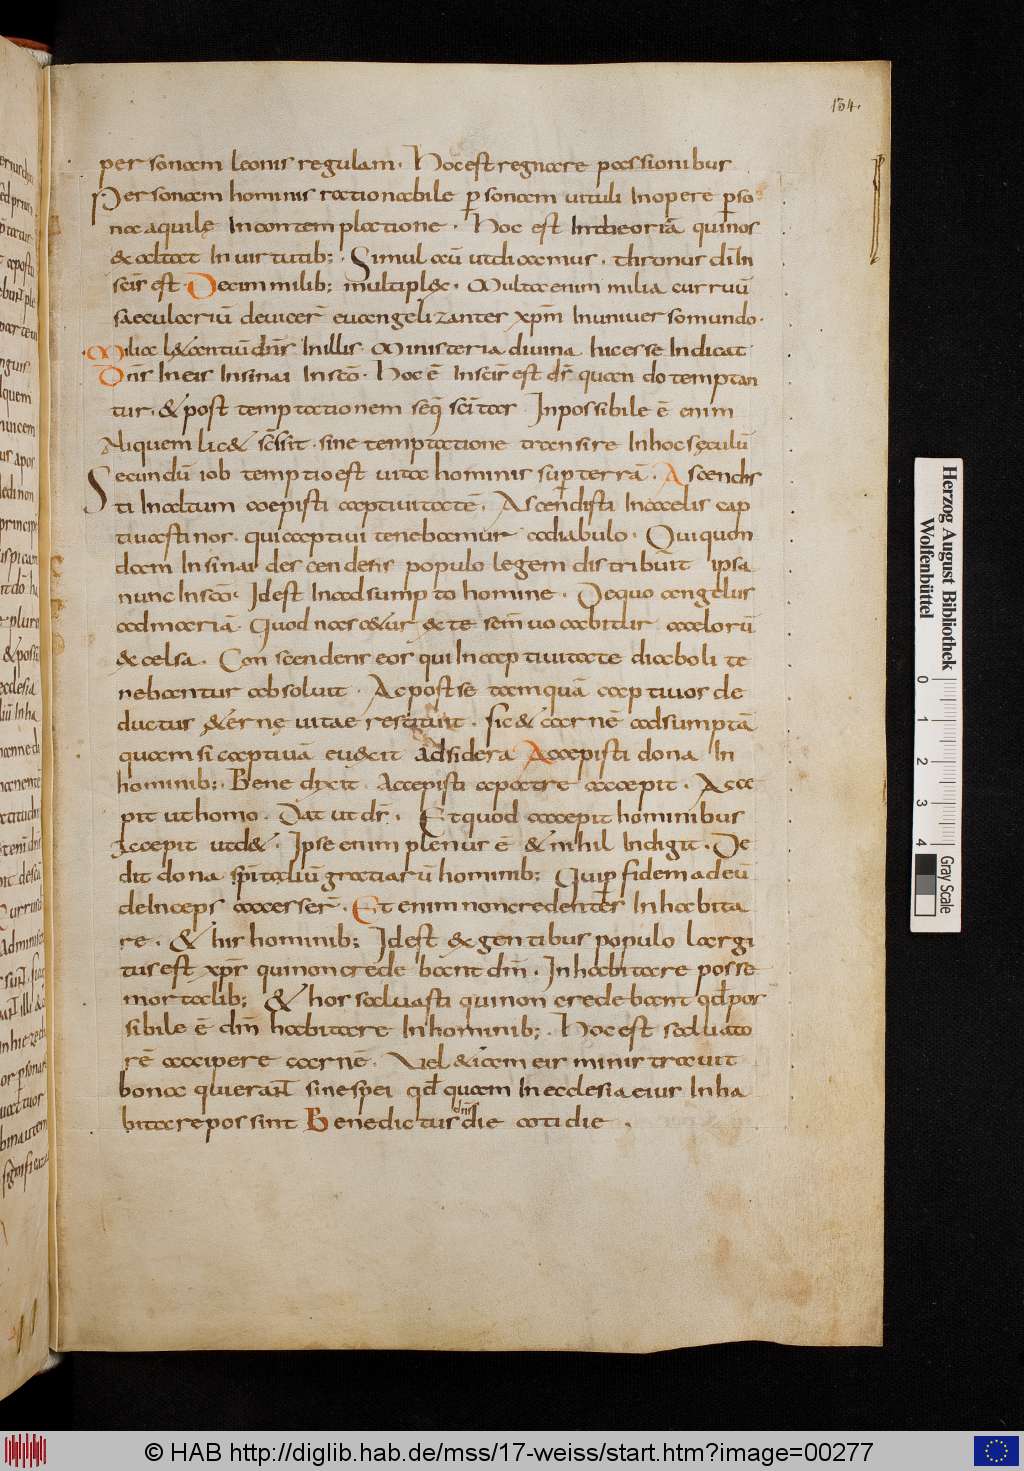 134.
personam leonis regulam. Hoc est regnare passionibus
Personam hominis rationabile p̱sonam uituli In opere p̱so
na aquile In contemplatione. Hoc est In theoriā quinos
& adtact In uirtutib; . Simul aū ut dicamus. thronus dī In
scīs est. Decim milib; multiplęc. Multa enim milia curruū
saeculariū deuicer̄ euangelizantes xp̄m In uniuerso mundo.
Milia l&antiū dn̄s In illis. Ministeria diuina hic esse Indicat
Dn̄s In eis In sinai In scō. Hoc ē In scīs est dr̄ quando temptan
tur. & post temptationem seq̄ scītas Inpossibile ē enim
Aliquem lic& sc̄s sit. sine temptatione transire In hoc sęculū
Secundū iob temptio est uita hominis sup̱ terrā. Ascendis
ti In altum coepisti captiuitatē. Ascendisti In caelis cap
tiuasti nos. qui captiui tenebamur a diabulo. Qui quon
dam In sinai descendens populo legem distribuit ipsa
nunc In scō. Id est In adsumpto homine. De quo angelus
ad mariā. Quod nasc&ur & te sem̄ uocabitur caelorū
& celsa. Conscendens eos qui In captiuitate diaboli te
nebantur absoluit. Ac post se tamquā captiuos de
ductus &ernę uitae restituit. sic & carnē adsumptā
quam si captiuā euexit ad sidera Accepisti dona In
hominib; . Bene dixit. Accepisti a patre accepit. Acce
pit ut homo. Dat ut dr̄. Et quod accepit hominibus
Accepit ut d&. Ipse enim plenus ē & nihil Indigit. De
dit dona sp̄italiū gratiarū hominib; Qui p̱ fidem ad eū
deInceps accesser̄. Et enim non credentes In habita
re. & his hominib; Id est & gentibus populo largi
tus est xpr̄ qui non credebant dm̄. In habitare posse
mortalib; & hos saluasti qui non credebant qd̄ pos
sibile ē dm̄ habitare In hominib; . Hoc est saluato
rē accipere carnē. Vel &iam eis ministrauit
bona qui erant sine spei qd̄ quam In ecclesia eius Inha
bitare possint Benedictus dn̄s die cotidie .
Herzog August Bibliothek
Wolfenbüttel
0 1 2 3 4
Gray Scale
© HAB http://diglib.hab.de/mss/17-weiss/start.htm?image=00277